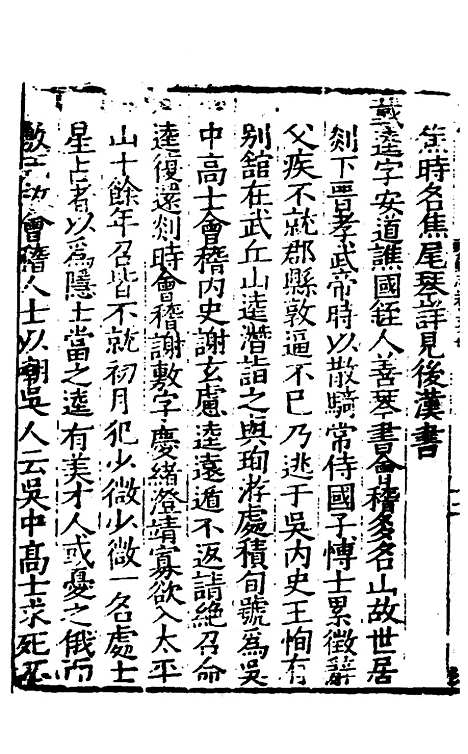 焦時名焦尾琴詳見後漢書
戴逵字安道譙國銍人善琴書會稽多名山故世居
剡下晋孝武帝時以散騎常侍國子博士累徵辭
父疾不就郡縣敦逼不已乃逃于吳内史王恂有
别舘在武丘山逵潛詣之與珣游處積旬號爲吳
中高士會稽内史謝玄慮逵遠遁不返請絶召命
逵復還剡時會稽謝敷字慶緒澄靖寡欲入太平
山十餘年召皆不就初月犯少微少微一名處士
星占者以爲隱士當之逵有美才人或憂之俄而
敷死故會稽人士以嘲吳人云吳中高士求死不